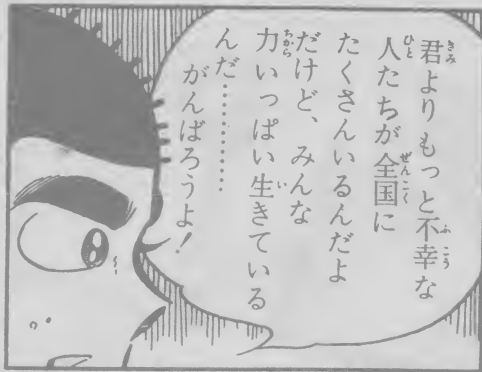 君よりもっと不幸な
人たちが全国に
たくさんいるんだよ
だけど、みんな
力いっぱい生きている
んだ………
がんばろうよ！